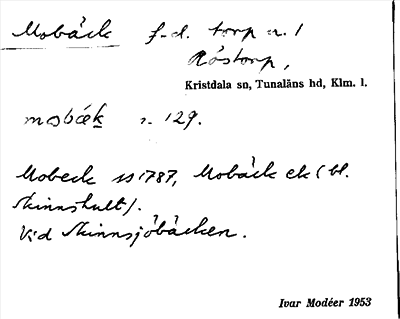 Mobäck f.d. torp u. /
Röstorp,
Kristdala sn, Tunaläns hd, Klm. l.
mobäk s. 129.
Mobeck 1787, Mobäck ek (bl.
Skinnshult).
Vid Skinnsjöbäcken.
Ivar Modéer 1953